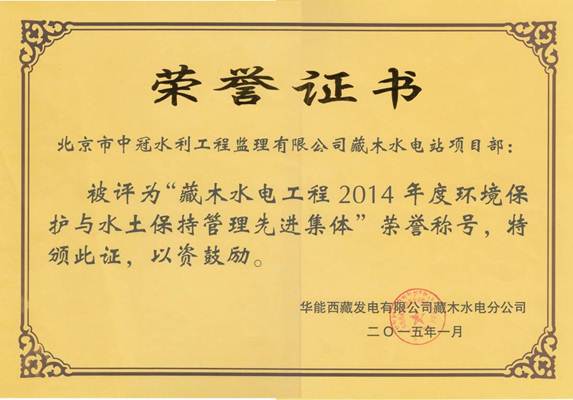 荣誉证书
北京市中冠水利工程监理有限公司藏木水电站项目部：
被评为“藏木水电工程2014年度环境保
护与水土保持管理先进集体”荣誉称号，特
颁此证，以资鼓励。
华能西藏发电有限公司藏木水电分公司
二〇一五年一月